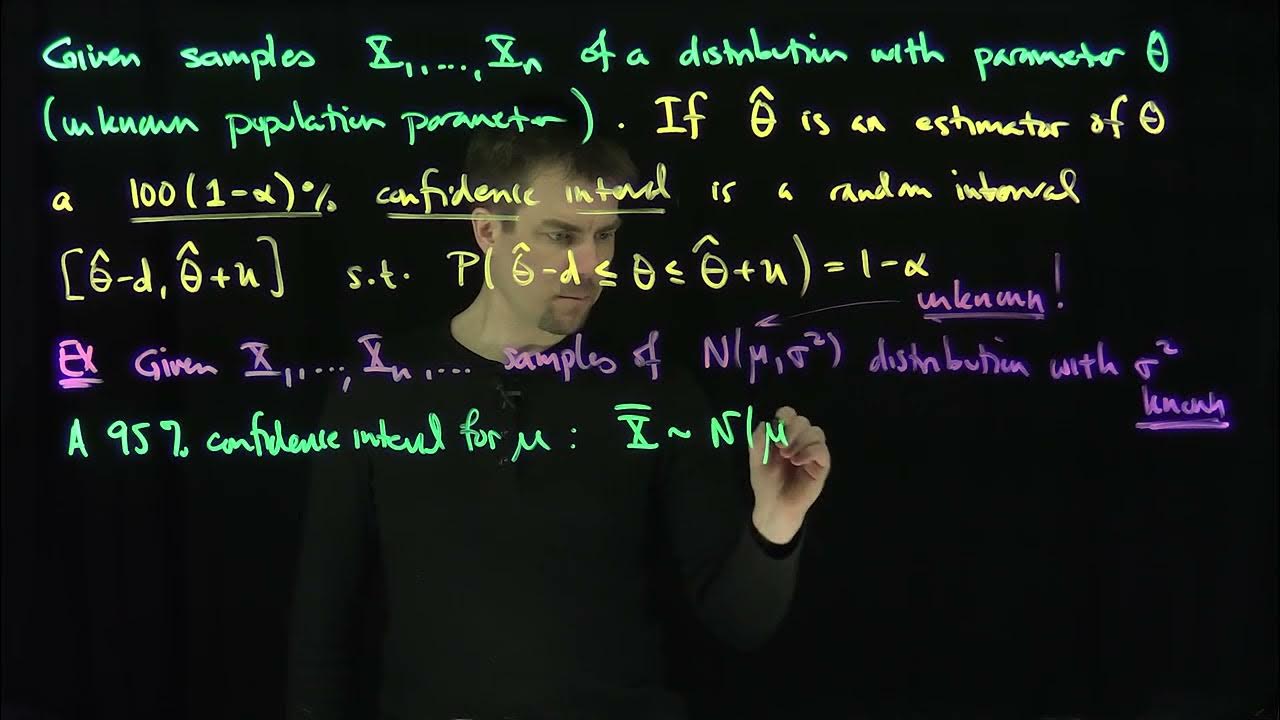 Given samples X₁,...,Xₙ of a distribution with parameter θ
(unknown population parameter). If θ̂ is an estimator of θ
a 100(1-α)% confidence interval is a random interval
[θ̂-d, θ̂+u] s.t. P(θ̂-d ≤ θ ≤ θ̂+u) = 1-α
unknown!
Ex Given X₁,...,Xₙ,... samples of N(μ,σ²) distribution with σ²
known
A 95% confidence interval for μ: X̄ ~ N(μ